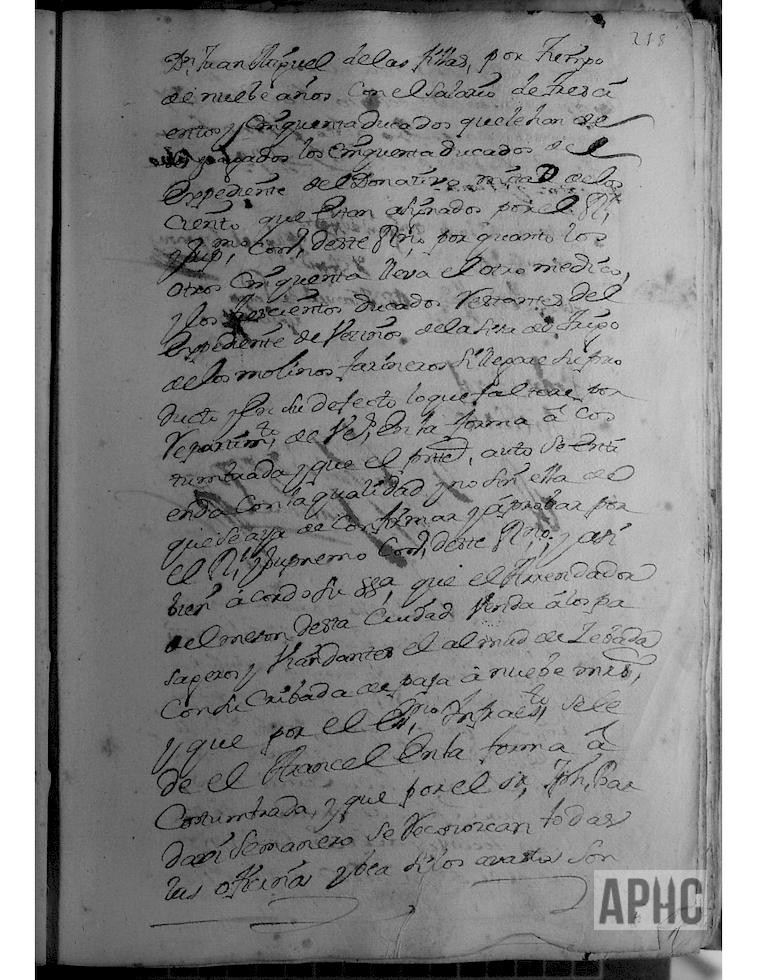 218
Dn Juan Miguel de las Rivas, por tiempo
de nuebe años con el Salario de tresci
entos y Cinquenta ducados que le han de
ser pagados los Cinquenta ducados de el
Expediente del Donativo mitad de los
Ciento que estan asignados por el Rl
y Supmo Conl, deste Rno por quanto los
otros Cinquenta lleva el otro medico,
y los trescientos ducados restantes del
Expediente de Vecinos de la Sisa de trigo
de los molinos farineros si llegare su pro
ducto y en su defecto lo que faltare por
Repartimto de Vez, en la forma a cos
tumbrada y que el pnte, auto se enti
enda Con la qualidad y no sin ella de
que se aya de Confirmar y aprobar por
el Rl y Supremo Conl, deste Rno. y asi
bien acordo su ssa que el Arrendador
del meson desta Ciudad venda a los pa
sageros y Viandantes el almud de Zebada
Con su Cribada de paja a nuebe mrs,
y que por el Esno Infraescto, se le
de el Arancel en la forma a
Costumbrada, y que por el sr, Jph, Bar
daxi Semanero se Reconozcan todas
las oficinas y vea si los avastos son
APHC